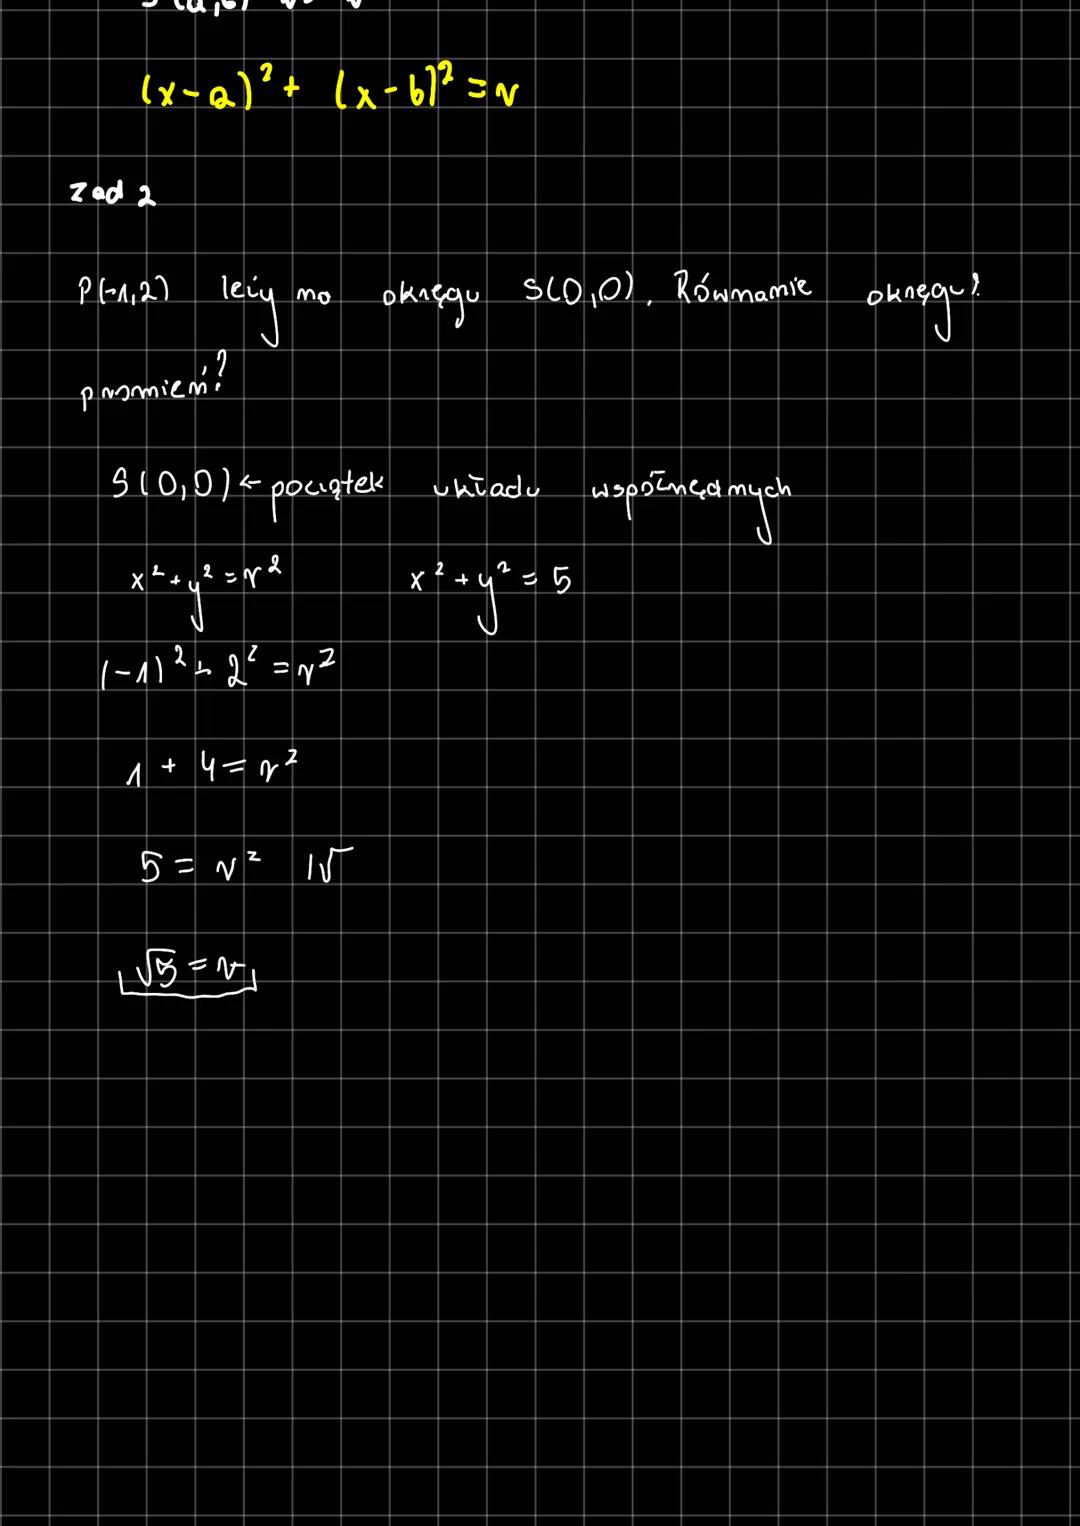 (x-a)² + (x-b)² = r
Zad 2
P(-1,2) leży na okręgu S(0,0). Równanie okręgu?
promień?
S(0,0) ← początek układu współrzędnych
x² + y² = r² x² + y² = 5
(-1)² + 2² = r²
1 + 4 = r²
5 = r² |√
√5 = r